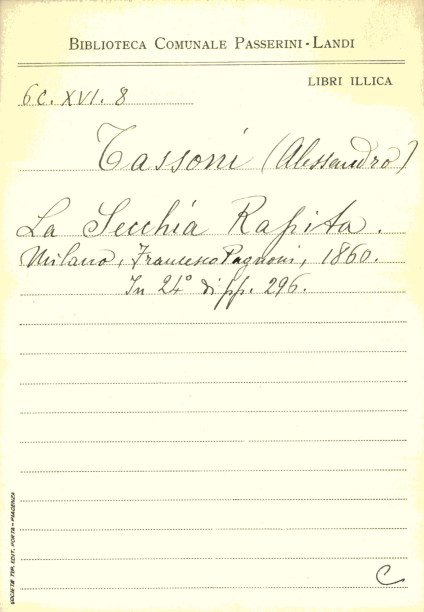 BIBLIOTECA COMUNALE PASSERINI-LANDI
LIBRI ILLICA
6C. XVI. 8
Tassoni (Alessandro)
La Secchia Rapita.
Milano, Francesco Pagnoni, 1860.
In 24° di pp. 296.
SOCIETÀ TIP. EDIT. PORTA - PIACENZA
C